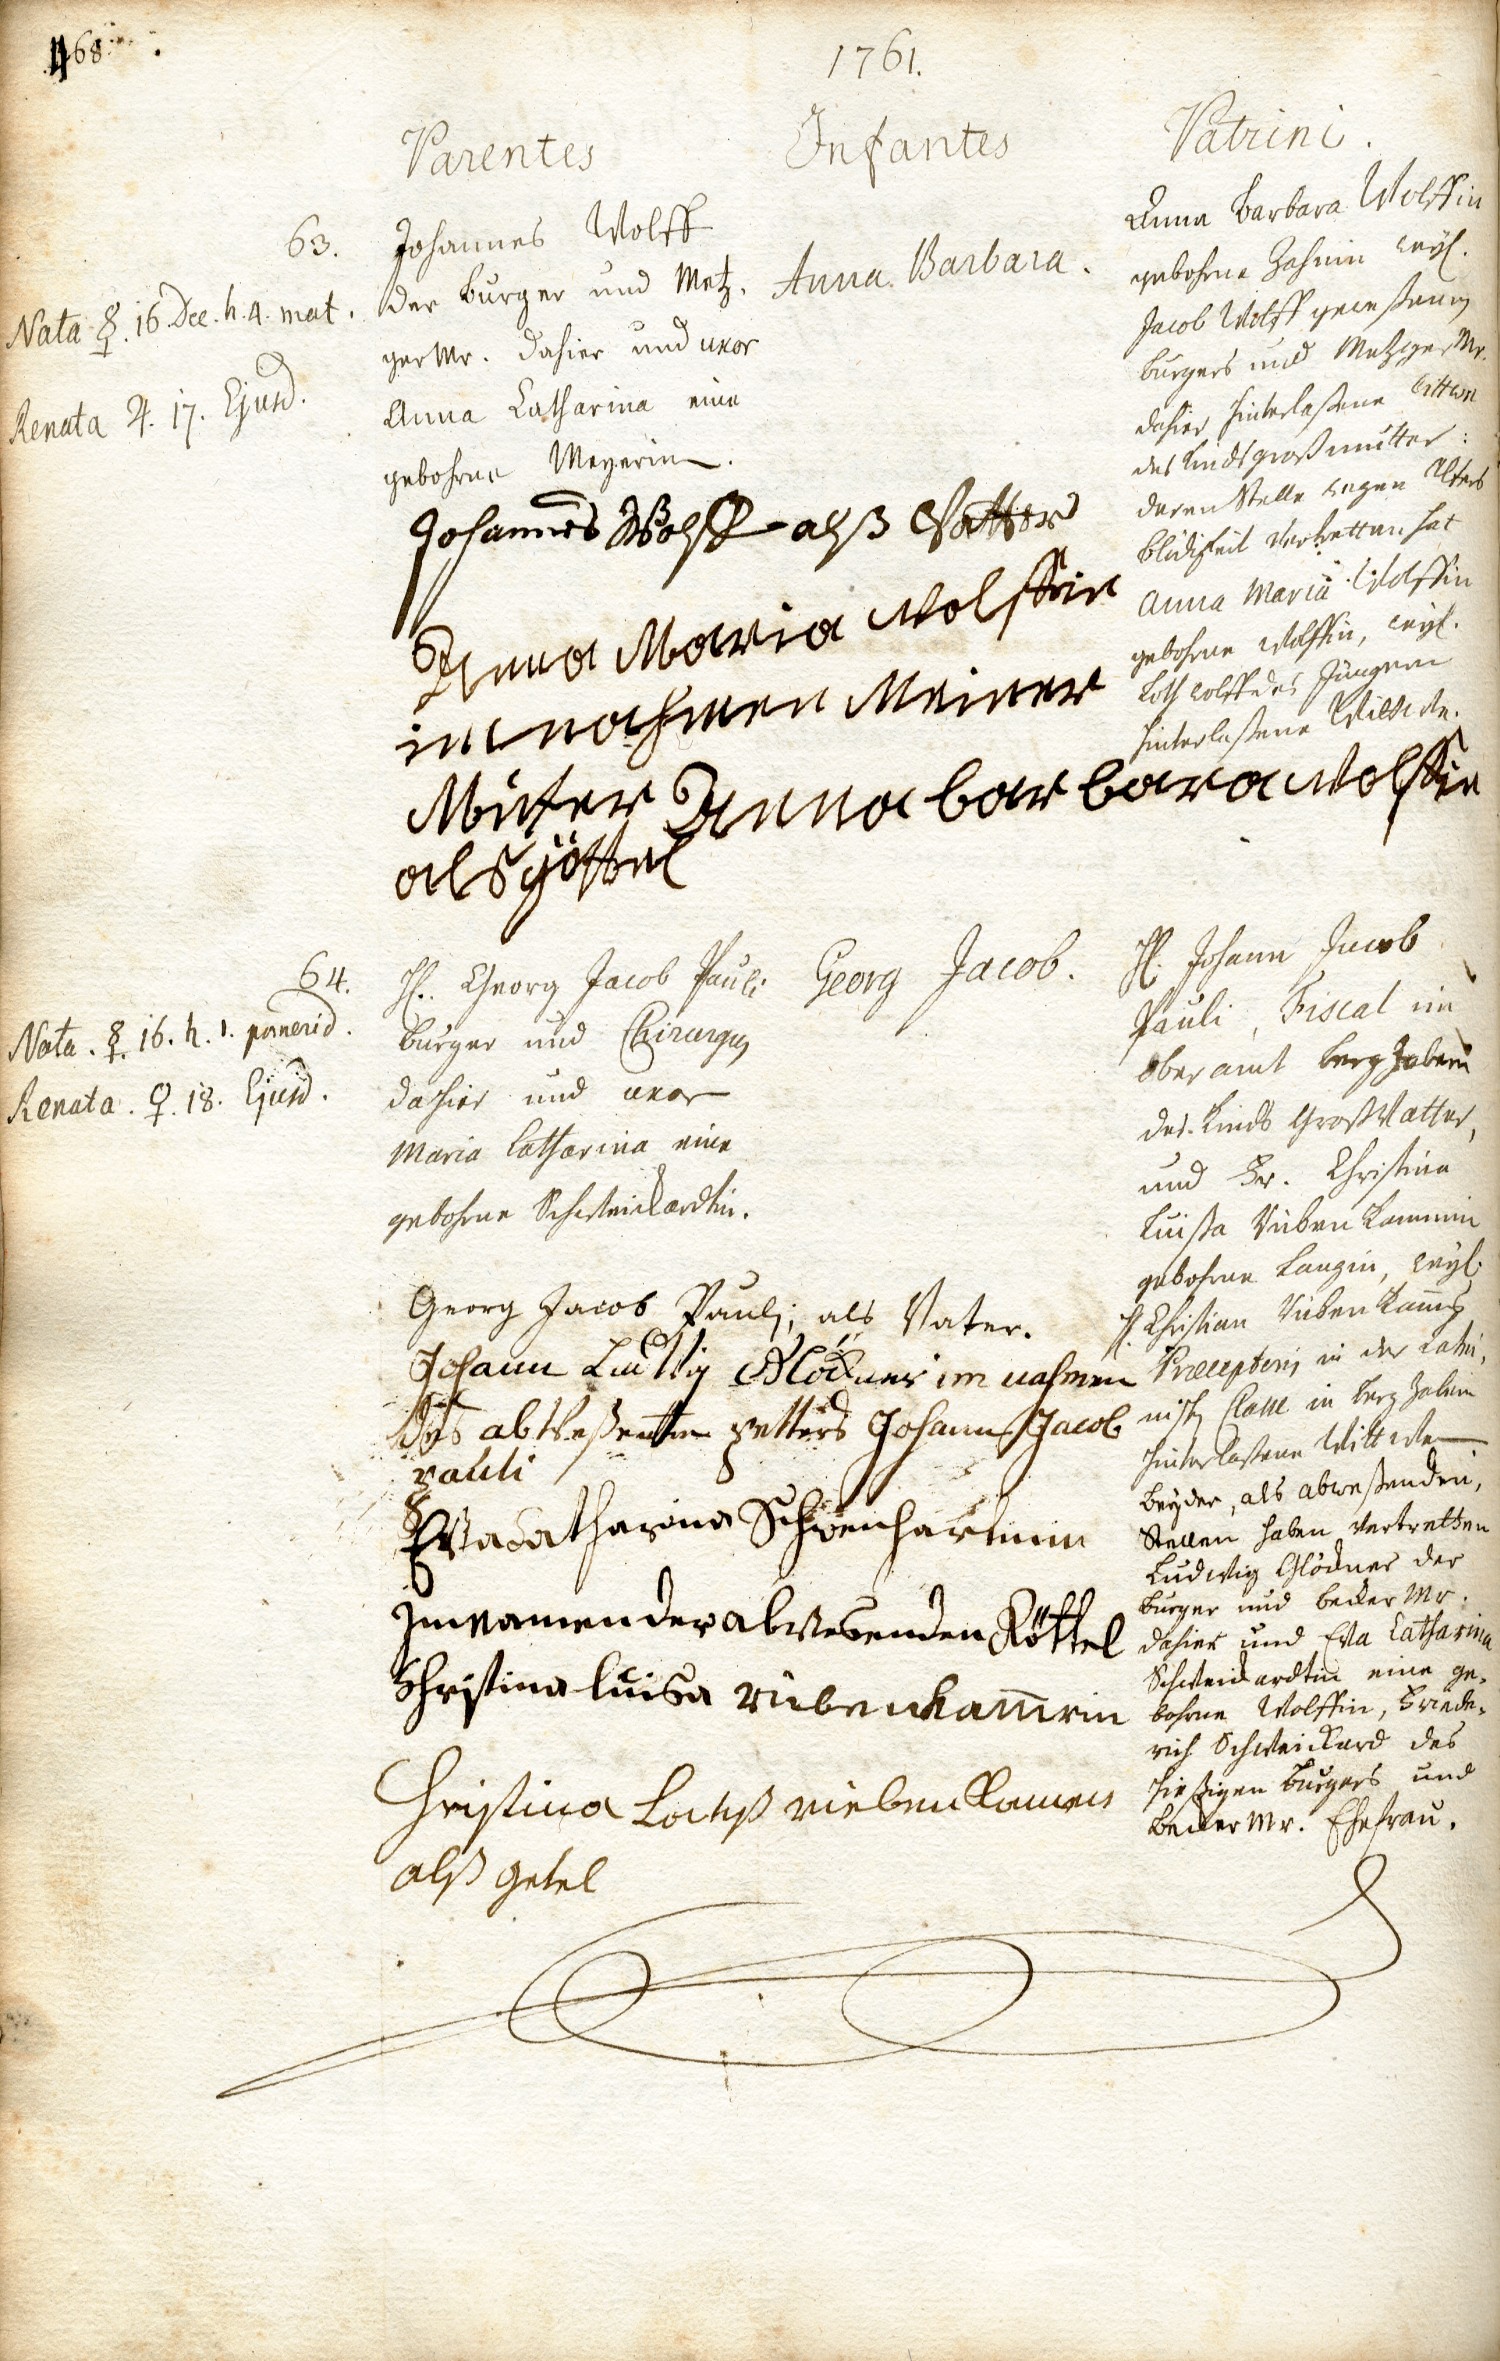 468
1761.
Parentes
Infantes
Patrini.
63.
Nata ☿. 16. Dec. h. 4. mat.
Renata ♃. 17. Ejusd.
Johannes Wolff
der burger und Metz-
ger Mr. dahier und uxor
Anna Catharina eine
gebohrne Meyerin.
Anna Barbara.
Anna Barbara Wolffin
gebohrne Zahnin weyl.
Jacob Wolff geweßenen
burgers und Metzger Mr.
dahier hinterlaßene Wittwe
des Kinds großmutter:
deren Stelle wegen Alters
blödigkeit vertretten hat
Anna Maria Wolffin
gebohrne Wolffin, weyl.
Wolff des Jüngern
hinterlaßene Wittwe.
Johannes Wolff alß Vatter
Anna Maria Wolffin
im nahmen Meiner
Mutter Anna barbara Wolffin
als göttel
64.
Nata. ☿. 16. h. 1. pomerid.
Renata. ♀. 18. Ejusd.
H. Georg Jacob Pauli
burger und Chirurgus
dahier und uxor
Maria Catharina eine
gebohrne Schweickardtin.
Georg Jacob.
H. Johann Jacob
Pauli, Fiscal im
Oberamt bergzabern
des Kinds GroßVatter,
und Fr. Christina
Luisa Rübenkammin
gebohrne Langin, weyl.
H. Christian Rübenkamms
Praeceptoris in der Latei-
nisch Classe in bergzabern
hinterlaßene Wittwe
beyder, als abweßenden,
Stellen haben vertretten
Ludwig Glöckner der
burger und becker Mr.
dahier und Eva Catharina
Schweickardtin eine ge-
bohrne Wolffin, Friede-
rich Schweickard des
hießigen burgers und
becker Mr. Ehefrau.
Georg Jacob Pauli, als Vater.
Johann Ludwig Glöckner im nahmen
des abweßenten petters Johann Jacob
pauli
Eva Catharina Schweickartin
Im namen der abwesenden Göttel
Christina luisa rübenkammrin
Christina rieben Kamen
alß getel